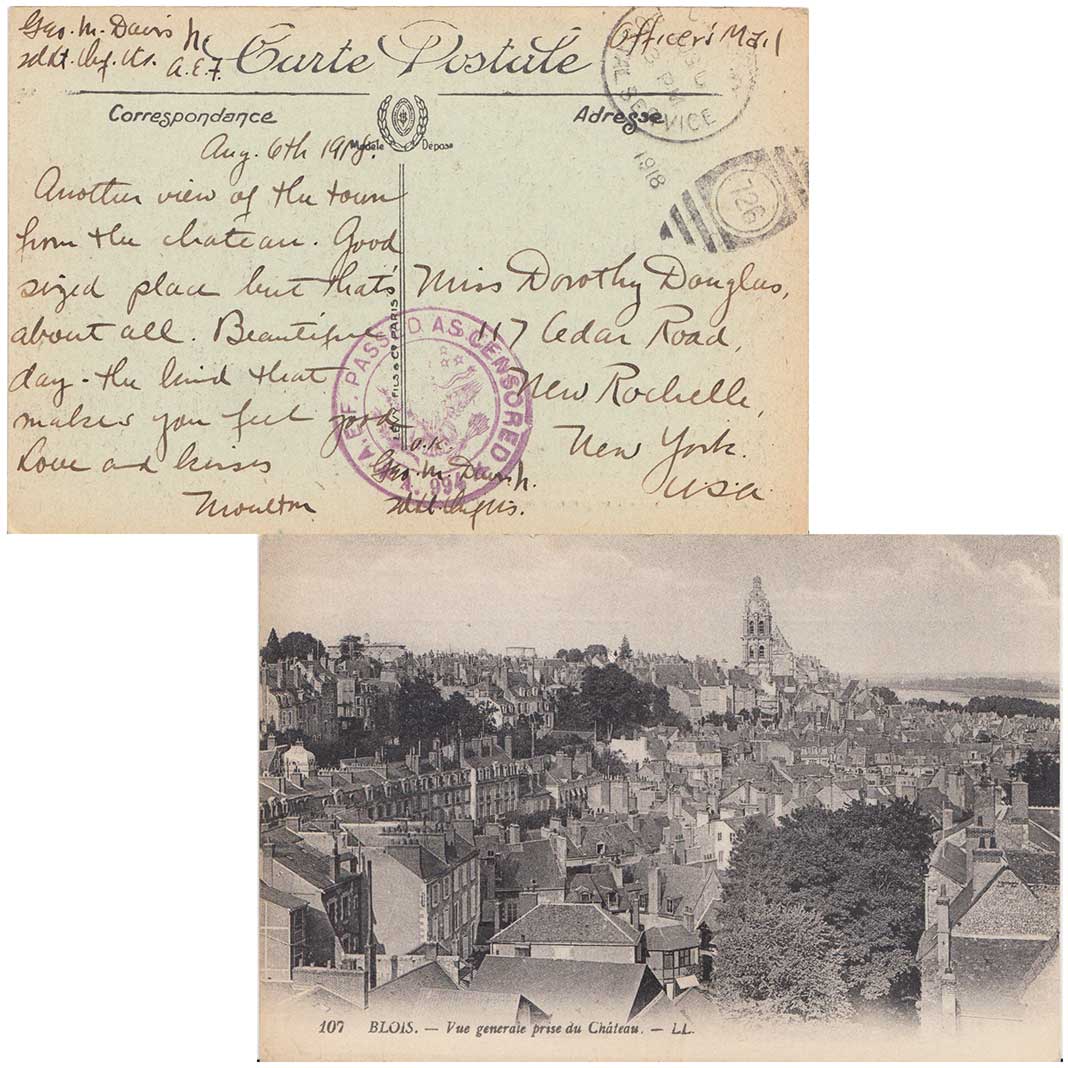 Geo. M. Davis Jr.
2d Lt. Inf. U.S.
A.E.F.
Carte Postale
Officer's Mail
Correspondance
Adresse
Modèle Déposé
SERVICE
1918
726
Aug. 6th 1918.
Another view of the town
from the chateau. Good
sized place but that's
about all. Beautiful
day - the kind that
makes you feel good
Love and kisses
Moulton
Miss Dorothy Douglas,
117 Cedar Road,
New Rochelle,
New York.
U.S.A.
FILS & Cie PARIS
A.E.F. PASSED AS CENSORED
A. 994
O.K.
Geo. M. Davis Jr.
2d Lt. Inf. U.S.
107 BLOIS. — Vue generale prise du Château. — LL.